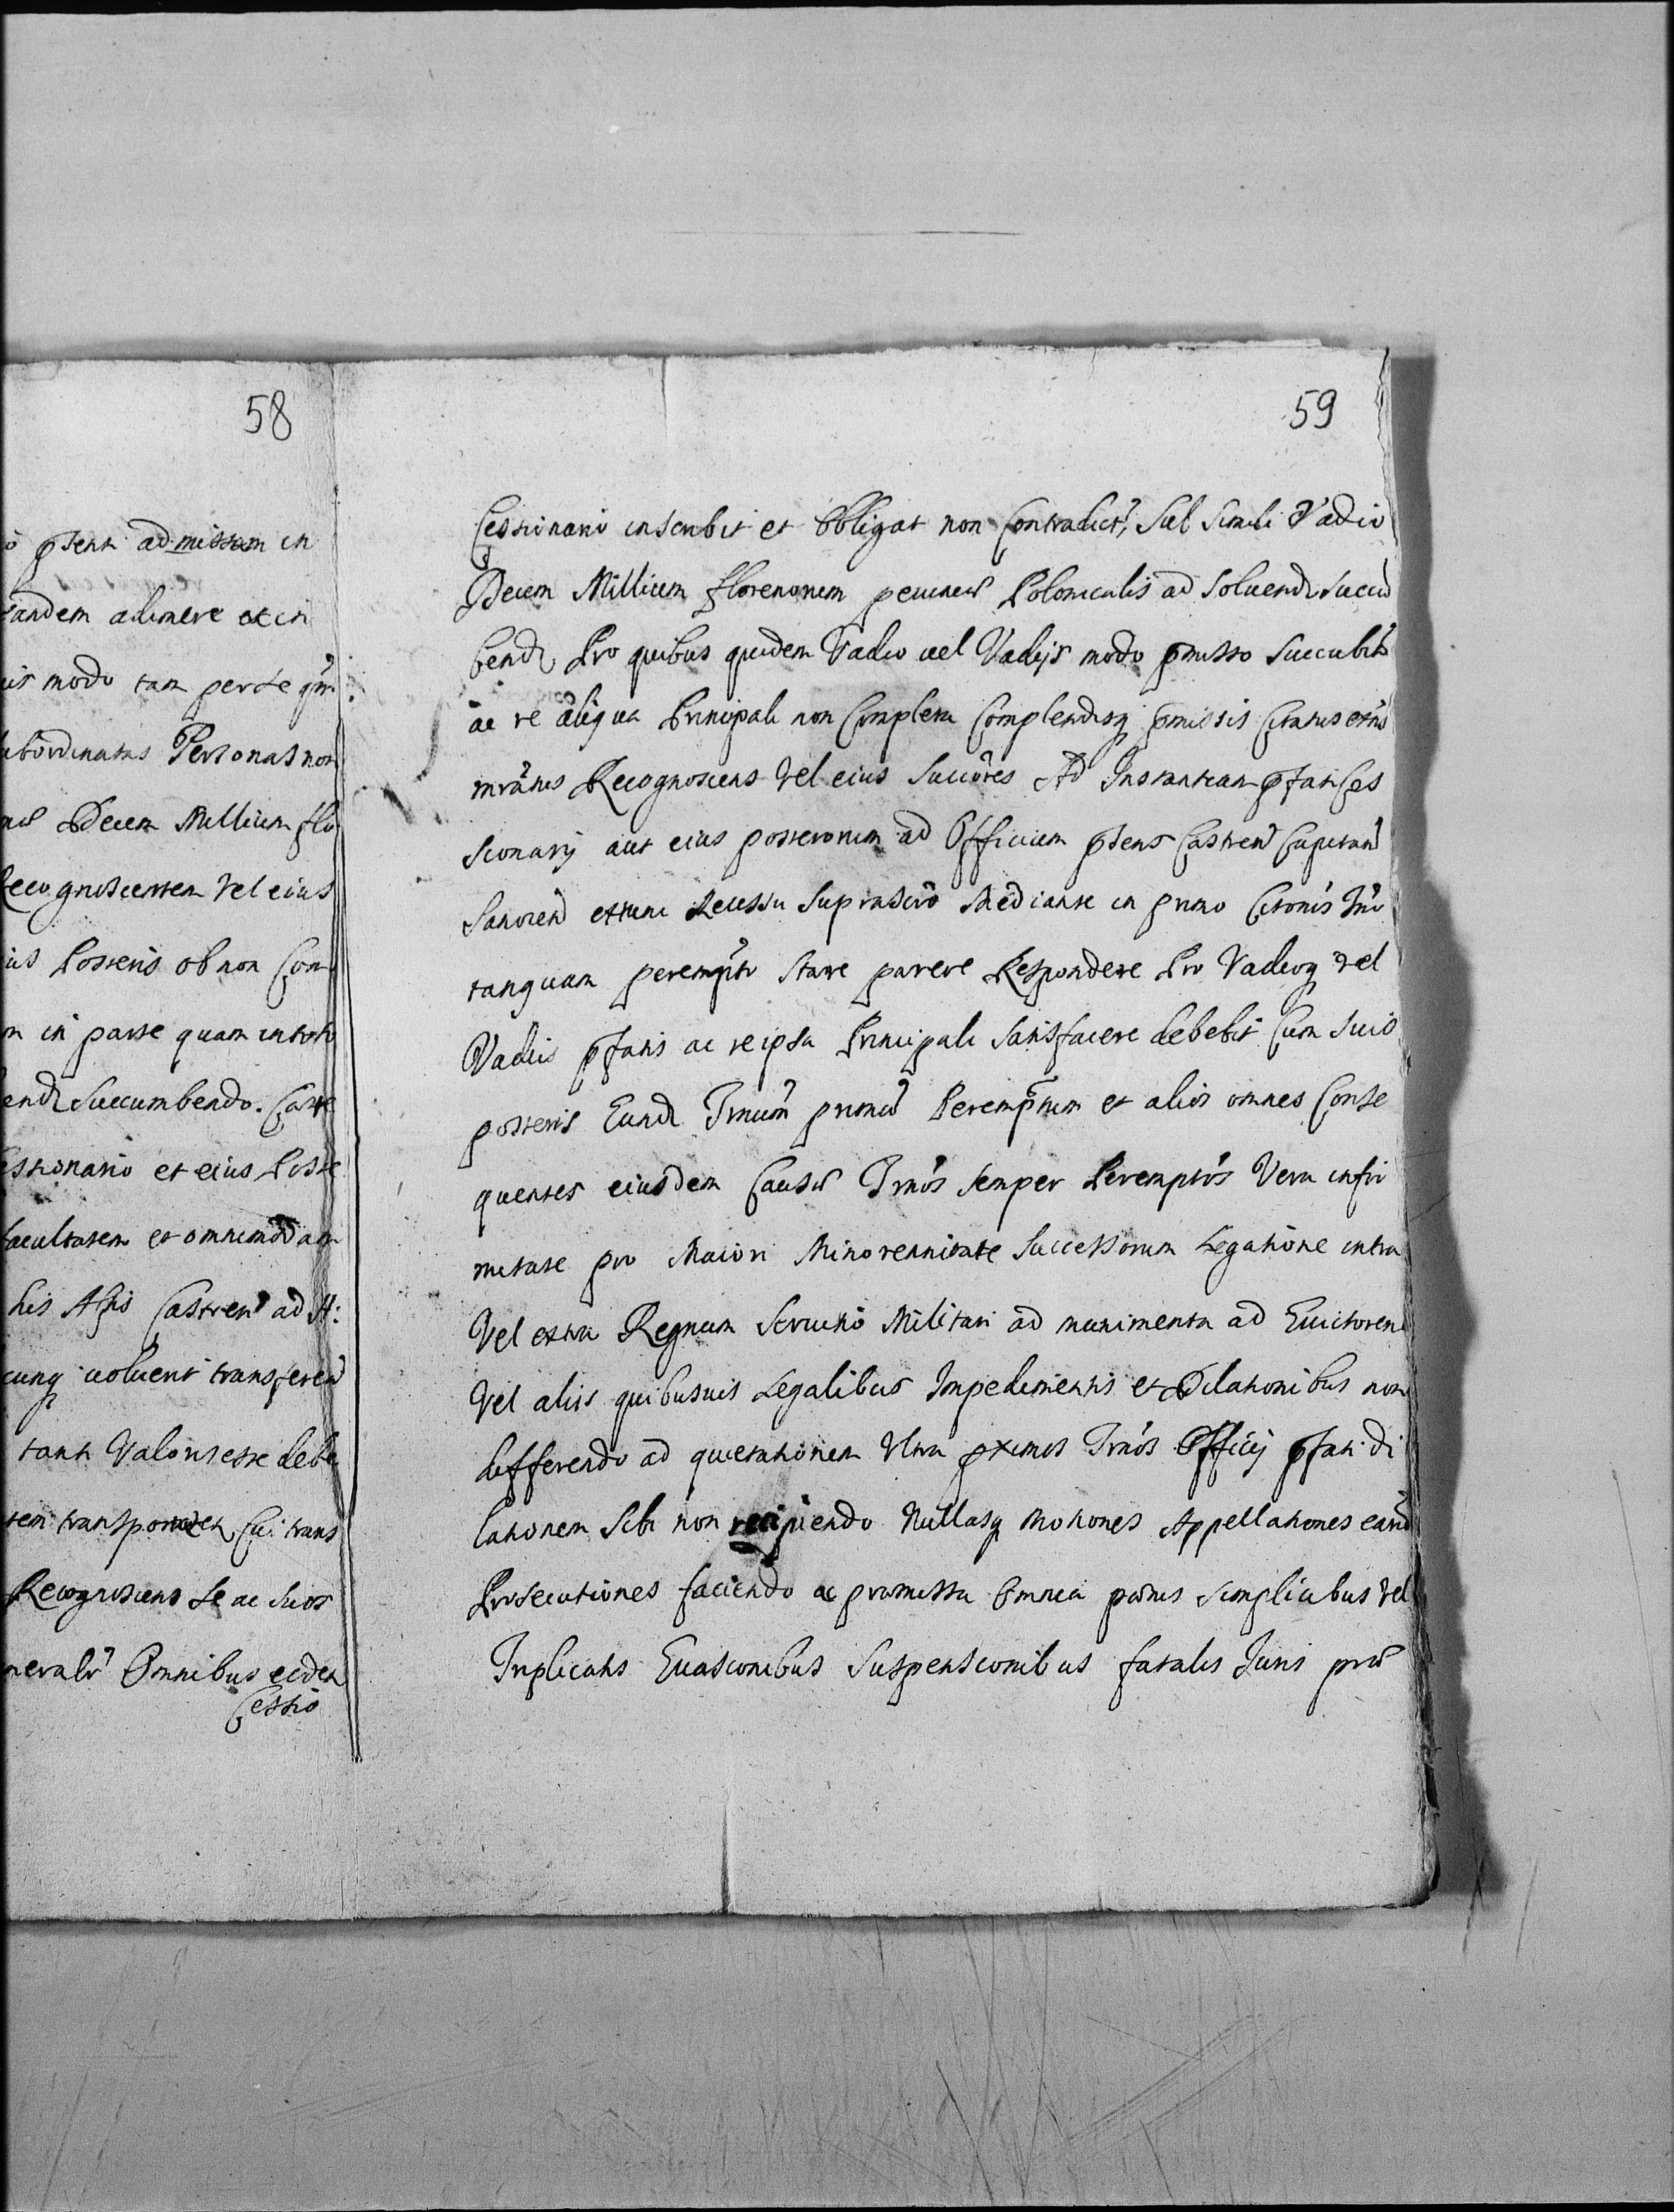 58
ò pſent admissam in
eandem adimere et in
uis modo tam per se qm̃
ubordinatas Personas non
Decem Millium flo
Recognoscentem vel eius
ius Posteris ob non Com
m in parte quam in toto
end Succumbendo. Caste
essionario et eius Poste
facultatem et omnimodam
his Actis Castren ad A:
cunq voluerit transferen
tanti Valoris esse debe
tem transportatem cui trans
Recognoscens se ac suos
neralr Omnibus eidem
Cessio
59
Cessionario inscribit et Obligat non Contradict, Sub Simili Vadio
Decem Millium florenorum pecuniæ Polonicalis ad Soluend Succu
bend Pro quibus quidem Vadio vel Vadijs modo pmisso Succubit
ac re aliqua Principali non Completa Complendisq pmissis Citatus etus
mrãtus Recognoscens Vel eius Succôres Ad Instantiam pfati Ces
sionarij aut eius posterorum ad Officium pſens Castren Capitan
Sanocen ettunc Recessu Suprascrõ Mediante in primo Citonis Tno
tanquam perempto Stare parere Respondere Pro Vadioq vel
Vadiis pfatis ac re ipsa Principali Satisfacere debebit Cum Suis
posteris Eund Tnum primũ Peremptum et alios omnes Conse
quentes eiusdem Causæ Tnos Semper Peremptos Vera infir
mitate pro Maiori Minorennitate Successorum Legatione intra
Vel extra Regnum Servitio Militari ad munimenta ad Evictorem
Vel aliis quibusvis Legalibus Impedimentis et Dilationibus non
differendo ad quietationem Ultra pximos Tnos Officij pfati di
lationem Sibi non recipiendo Nullasq Motiones Appellationes earũ
Prosecutiones faciendo ac præmissa Omnia pœnis Simplicibus Vel
Triplicatis Evasionibus Suspensionibus fatalis Iuris præ